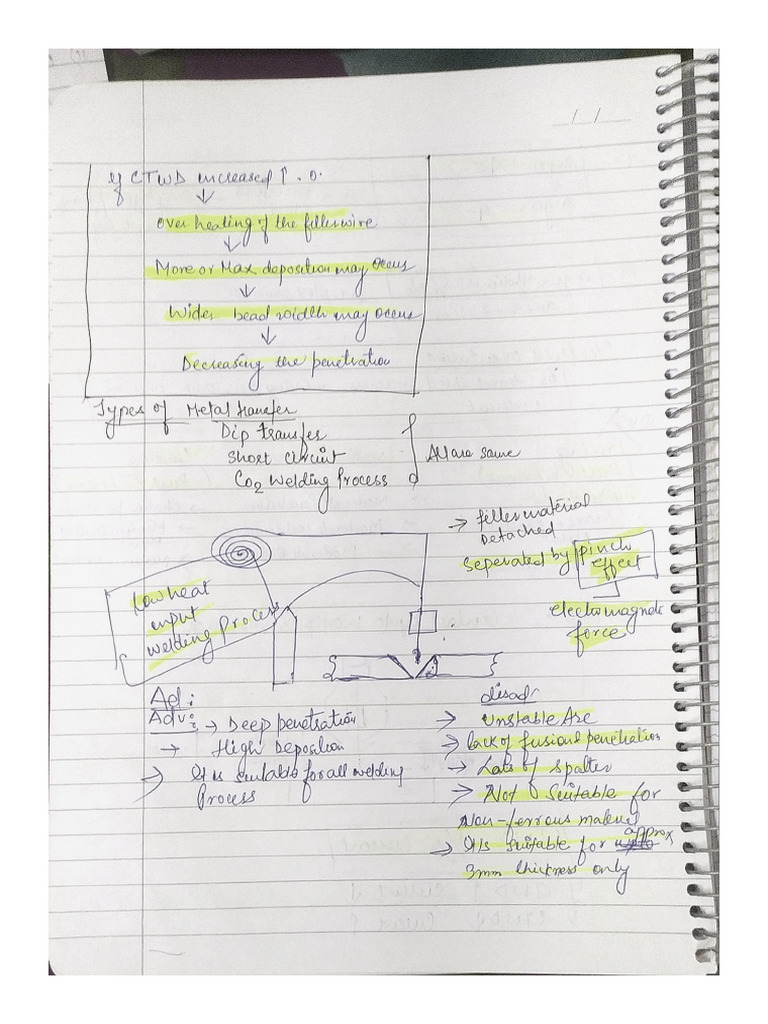 / /
If CTWD increased ↑
↓
over heating of the fillerwire
↓
More or Max deposition may occur
↓
Wider bead width may occur
↓
Decreasing the penetration
Types of Metal transfer
Dip transfer
Short circuit
CO2 Welding Process
All are same
→ filler material
Detached
Seperated by pinch
effect
electromagnetic
force
Low heat
input
welding process
Ad:
Adv: → Deep penetration
→ High Deposition
→ It is suitable for all welding
Process
disad
→ Unstable Arc
→ lack of fusion penetration
→ Lots of spatter
→ Not Suitable for
Non-ferrous material
→ It is suitable for approx
3mm thickness only